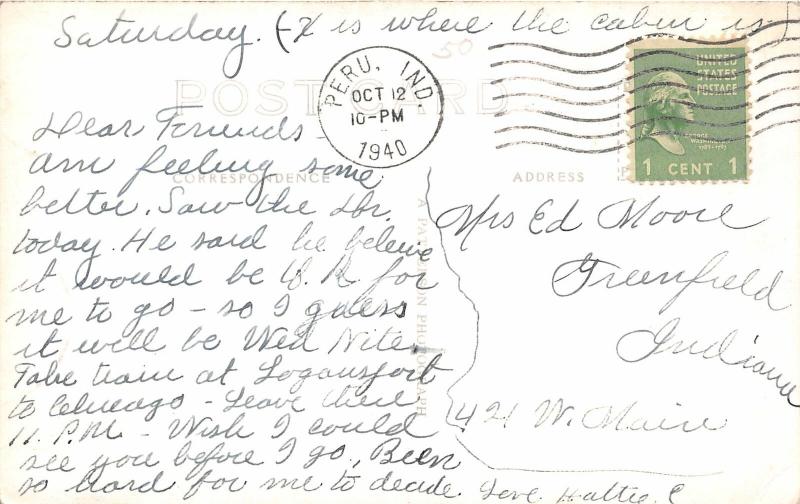 Saturday. (-X is where the cabin is)
50
POST CARD
PERU, IND.
OCT 12
10-PM
1940
UNITED
STATES
POSTAGE
GEORGE
WASHINGTON
1789-1797
1 CENT 1
CORRESPONDENCE
ADDRESS
Dear Friends
am feeling some
better. Saw the Dr.
today. He said he believe
it would be O.K. for
me to go - so I guess
it will be Wed Nite.
Take train at Logansport
to Chicago - Leave there
11. P.M. - Wish I could
see you before I go, Been
so hard for me to decide. Love Hattie. C
Mrs Ed Moore
Greenfield
Indiana
421 W. Main
PHOTOGRAPH